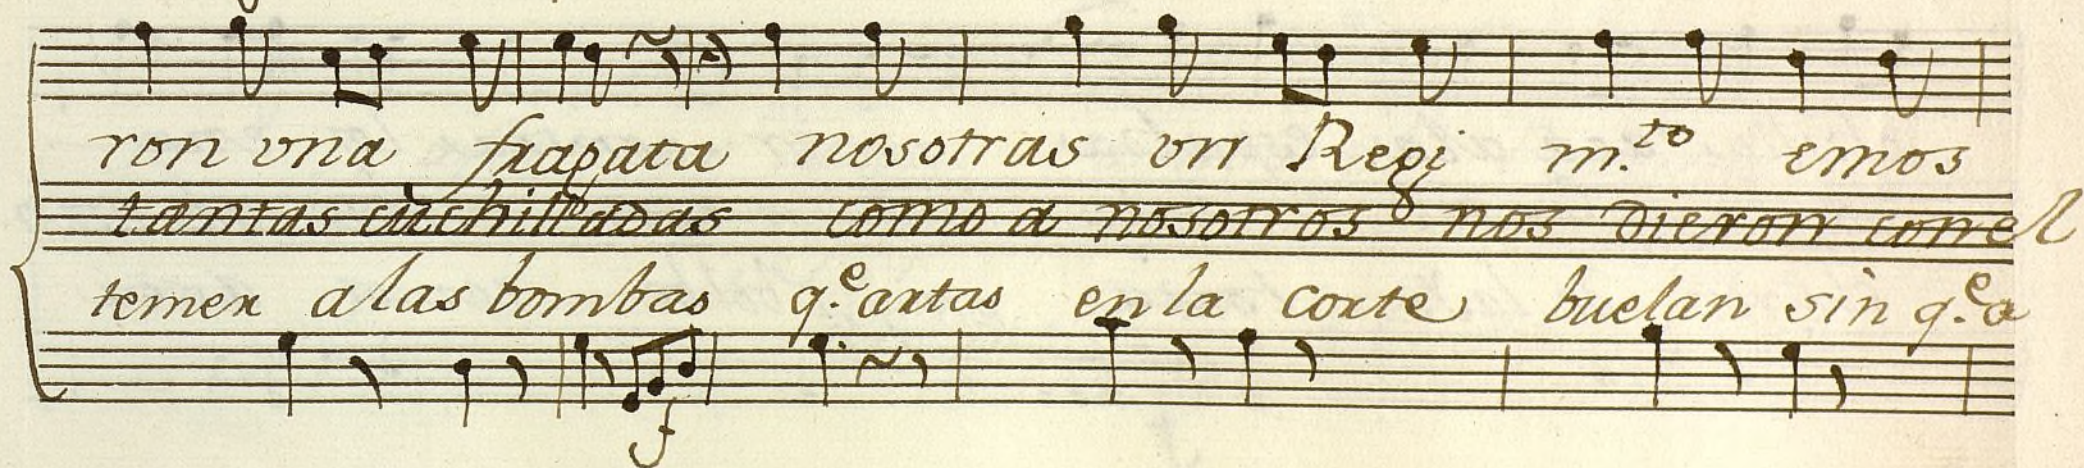 ron vna fragata nosotras vn Regi m.to emos
tantas cuchilladas como a nosotros nos dieron con el
temer a las bombas q.e artas en la corte buelan sin q.e a
f